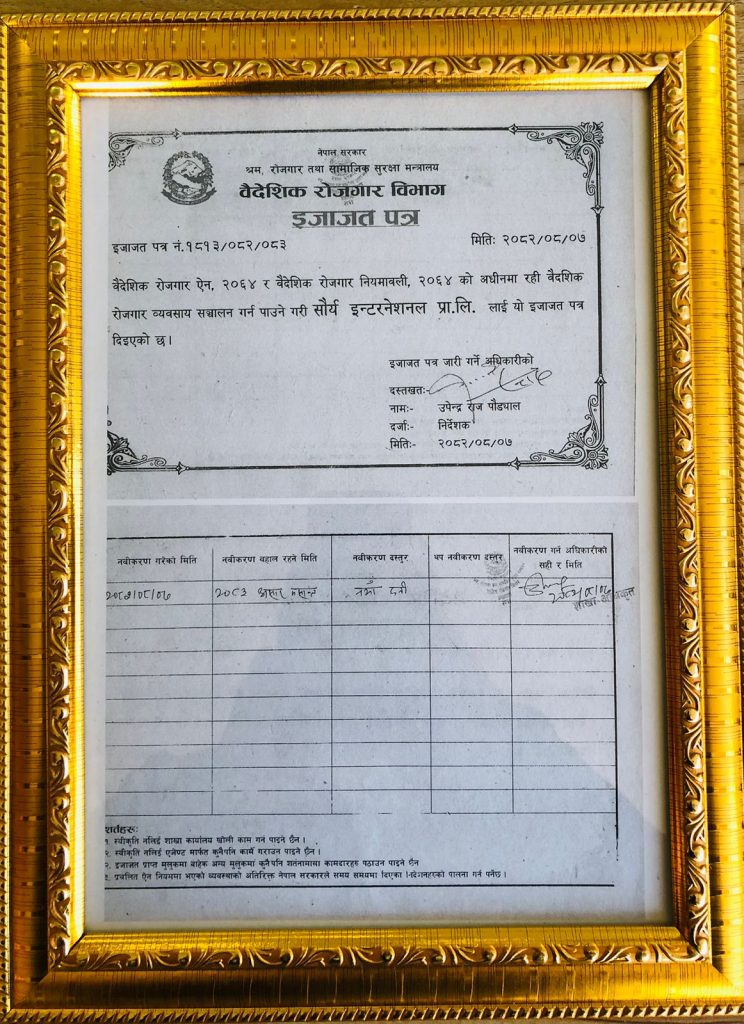 नेपाल सरकार
श्रम, रोजगार तथा सामाजिक सुरक्षा मन्त्रालय
वैदेशिक रोजगार विभाग
इजाजत पत्र
इजाजत पत्र नं.१८१३/०८२/०८३
मितिः २०८२/०८/०७
वैदेशिक रोजगार ऐन, २०६४ र वैदेशिक रोजगार नियमावली, २०६४ को अधीनमा रही वैदशिक
रोजगार व्यवसाय सञ्चालन गर्न पाउने गरी सौर्य इन्टरनेशनल प्रा.लि. लाई यो इजाजत पत्र
दिइएको छ।
इजाजत पत्र जारी गर्ने अधिकारीको
दस्तखतः
नामः- उपेन्द्र राज पौड्याल
दर्जाः- निर्देशक
मितिः- २०८२/०८/०७
नवीकरण गरेको मिति
नवीकरण बहाल रहने मिति
नवीकरण दस्तुर
थप नवीकरण दस्तुर
नवीकरण गर्ने अधिकारीको
सही र मिति
२०८२/०८/०७
२०८३ असार मसान्त
नयाँ दर्ता
शर्तहरुः
१. स्वीकृति नलिई शाखा कार्यालय खोली काम गर्न पाइने छैन।
२. स्वीकृति नलिई एजेण्ट मार्फत कुनैपनि कार्य गराउन पाइने छैन।
इजाजत प्राप्त मुलुकमा बाहेक अन्य मुलुकमा कुनैपनि शर्तनामामा कामदारहरु पठाउन पाइने छैन
प्रचलित ऐन नियममा भएको व्यवस्थाको अतिरिक्त नेपाल सरकारले समय समयमा दिएका निर्देशनहरुको पालना गर्नु पर्नेछ।